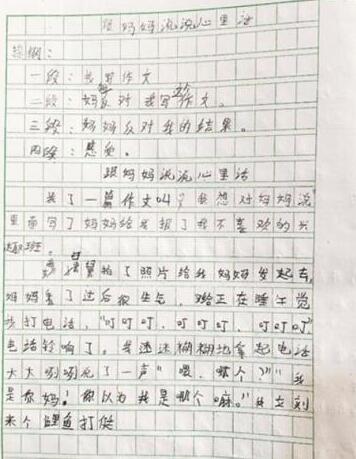 跟妈妈说说心里话
提纲：
一段：我写作文
二段：妈妈反对我写作文。
三段：妈妈反对我的结果。
四段：感受。
跟妈妈说说心里话
我了一篇作文叫？我想对妈妈说
里面写了妈妈给我报了我不喜欢的兴
趣班。
拍了照片给我妈妈发起去，
妈妈看了过后很生气，给正在睡午觉
打电话，“叮叮叮，叮叮叮，叮叮叮”
电话铃响了。我迷迷糊糊地拿起电话
大大咧咧说了一声“喂，哪个？”“我
是你妈！你以为我是哪个嘛。”我立刻
来个鲤鱼打挺